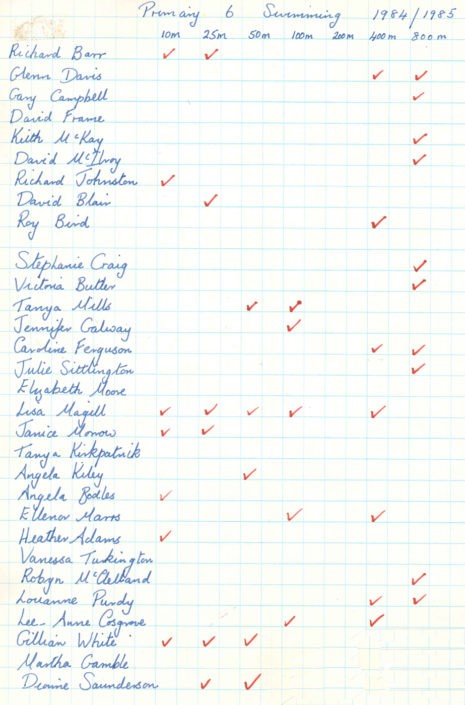 Primary 6 Swimming 1984/1985
10m 25m 50m 100m 200m 400m 800m
Richard Barr ✓ ✓
Glenn Davis ✓ ✓
Gary Campbell ✓
David Frame
Keith McKay ✓
David McIlroy ✓
Richard Johnston ✓
David Blair ✓
Roy Bird ✓
Stephanie Craig ✓
Victoria Butler ✓
Tanya Mills ✓ ✓
Jennifer Galway ✓
Caroline Ferguson ✓ ✓
Julie Sittlington ✓
Elizabeth Moore
Lisa Magill ✓ ✓ ✓ ✓ ✓
Janice Morrow ✓ ✓
Tanya Kirkpatrick
Angela Kiley ✓
Angela Bodles ✓
Ellenor Marrs ✓ ✓
Heather Adams ✓
Vanessa Turkington
Robyn McClelland ✓
Louanne Purdy ✓ ✓
Lee-Anne Cosgrove ✓ ✓
Gillian White ✓ ✓ ✓
Martha Gamble
Dionne Saunderson ✓ ✓